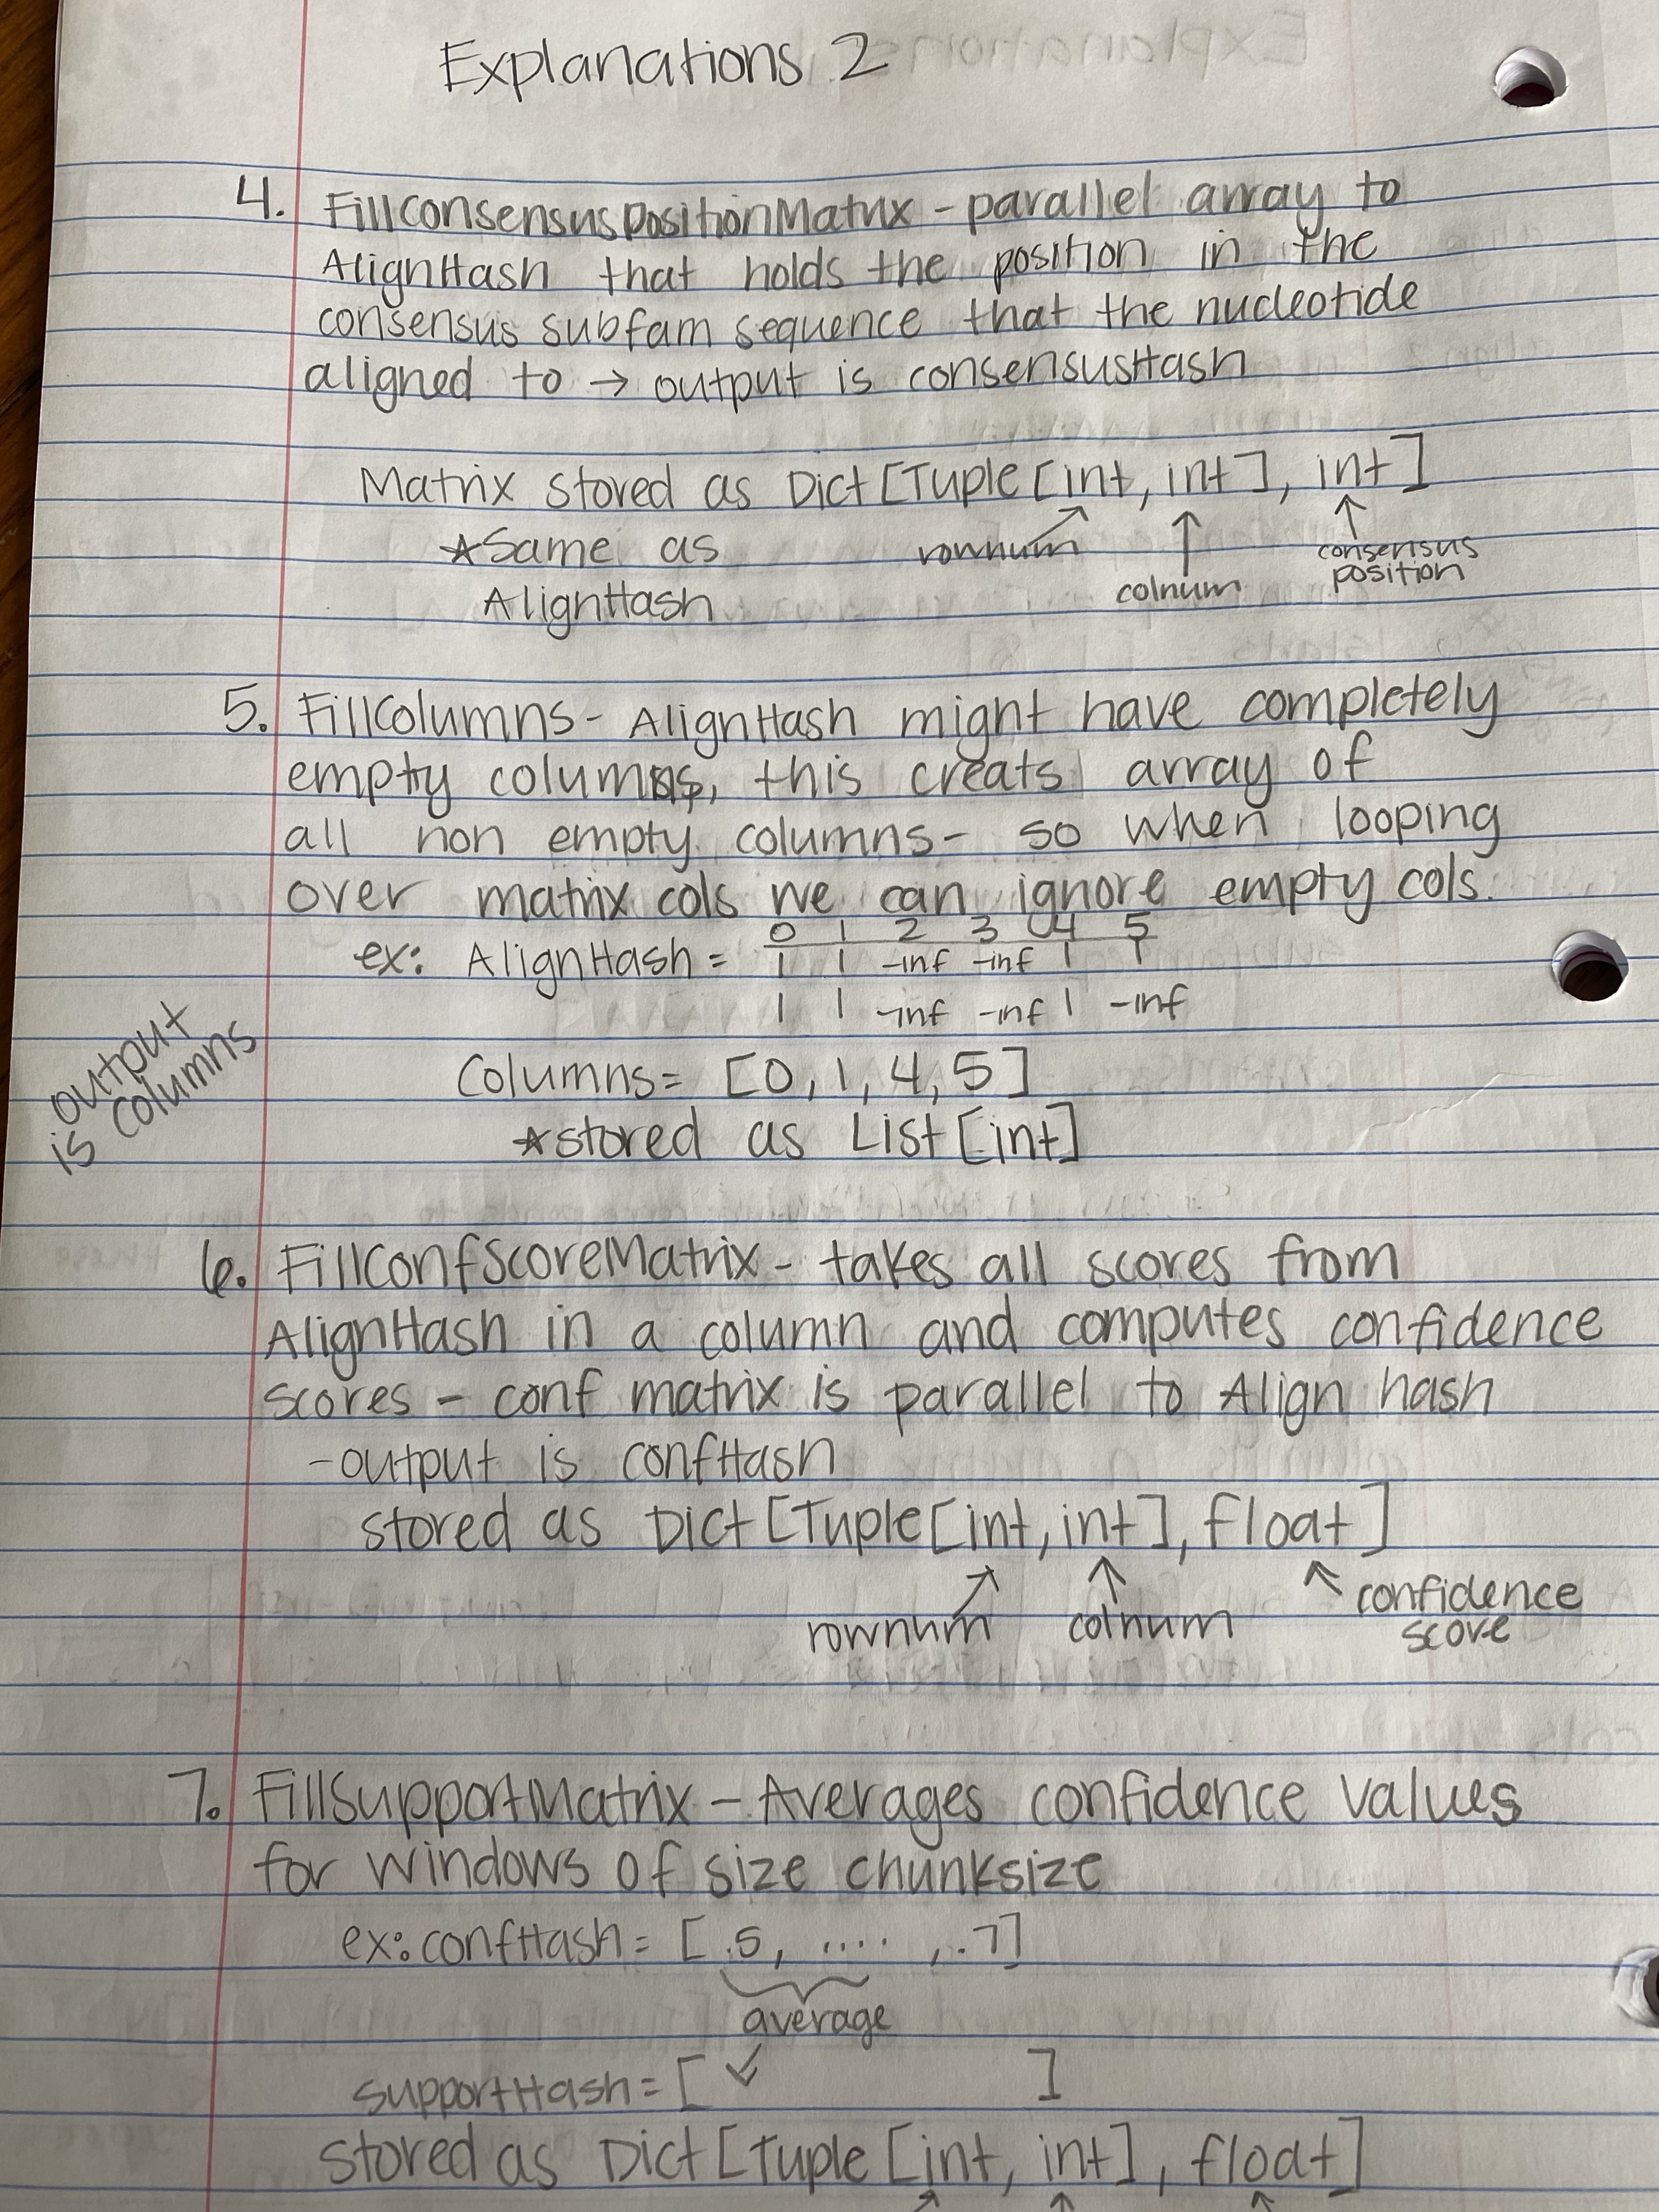 Explanations 2
4. FillConsensusPositionMatrix - parallel array to
AlignHash that holds the position in the
consensus subfam sequence that the nucleotide
aligned to → output is consensusHash
Matrix stored as Dict[Tuple[int, int], int]
★Same as
AlignHash
rownum
colnum
consensus
position
5. FillColumns - AlignHash might have completely
empty columns, this creats array of
all non empty columns - so when looping
over matrix cols we can ignore empty cols.
0 1 2 3 4 5
ex: AlignHash = 1 1 -inf -inf 1 1
1 1 -inf -inf 1 -inf
output
is columns
Columns = [0, 1, 4, 5]
★stored as List[int]
6. FillConfScoreMatrix - takes all scores from
AlignHash in a column and computes confidence
scores - conf matrix is parallel to Align hash
- output is confHash
stored as Dict[Tuple[int, int], float]
rownum colnum confidence
score
7. FillSupportMatrix - Averages confidence values
for windows of size chunksize
ex: confHash = [.5, .... , .7]
average
supportHash = [ ]
stored as Dict[Tuple[int, int], float]